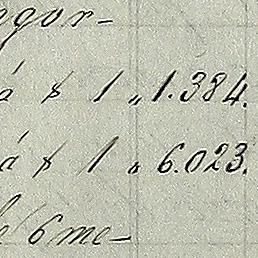 ngor-
á $ 1 „ 1.384.
á $ 1 „ 6.023.
6 me-